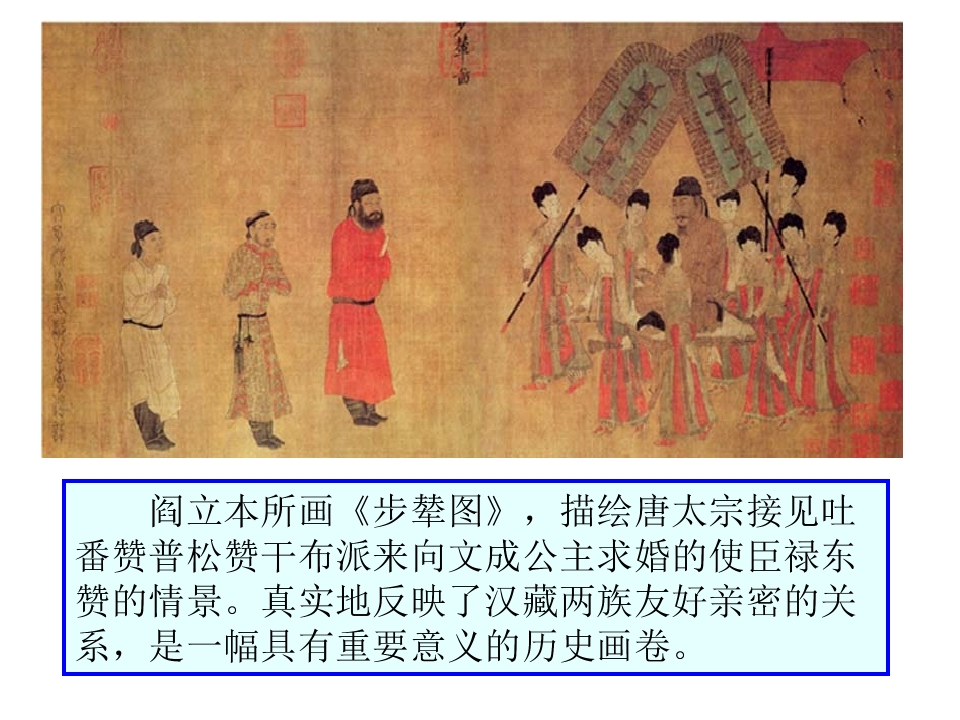 步輦圖
阎立本所画《步辇图》，描绘唐太宗接见吐
番赞普松赞干布派来向文成公主求婚的使臣禄东
赞的情景。真实地反映了汉藏两族友好亲密的关
系，是一幅具有重要意义的历史画卷。